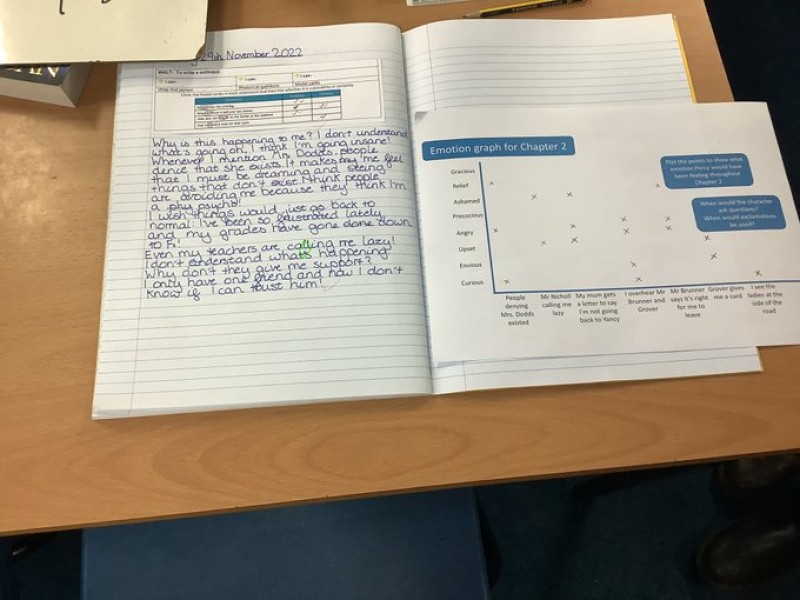 29th November 2022
WALT: To write a soliloquy.
I can:
I can:
I can:
Rhetorical questions
Modal verbs
Why is this happening to me? I don't understand
what's going on, I think I'm going insane!
Whenever I mention Mrs. Dodds, people
dence that she exists. It makes me feel
that I must be dreaming and seeing
things that don't exist. I think people
are avoiding me because they think I'm
a phy psycho!
I wish things would just go back to
normal: I've been so frustrated lately
and my grades have gone done down
to Fs!
Even my teachers are calling me lazy!
I don't understand what's happening!
Why don't they give me support?
I only have one friend and now I don't
know if I can trust him!
Emotion graph for Chapter 2
Plot the points to show what
emotion Percy would have
been feeling throughout
Chapter 2.
When would the character
ask questions?
When would exclamations
be used?
Gracious
Relief
Ashamed
Precocious
Angry
Upset
Envious
Curious
People
denying
Mrs. Dodds
existed
Mr Nicholl
calling me
lazy
My mum gets
a letter to say
I'm not going
back to Yancy
I overhear Mr
Brunner and
Grover
Mr Brunner
says it's right
for me to
leave
Grover gives
me a card
I see the
ladies at the
side of the
road